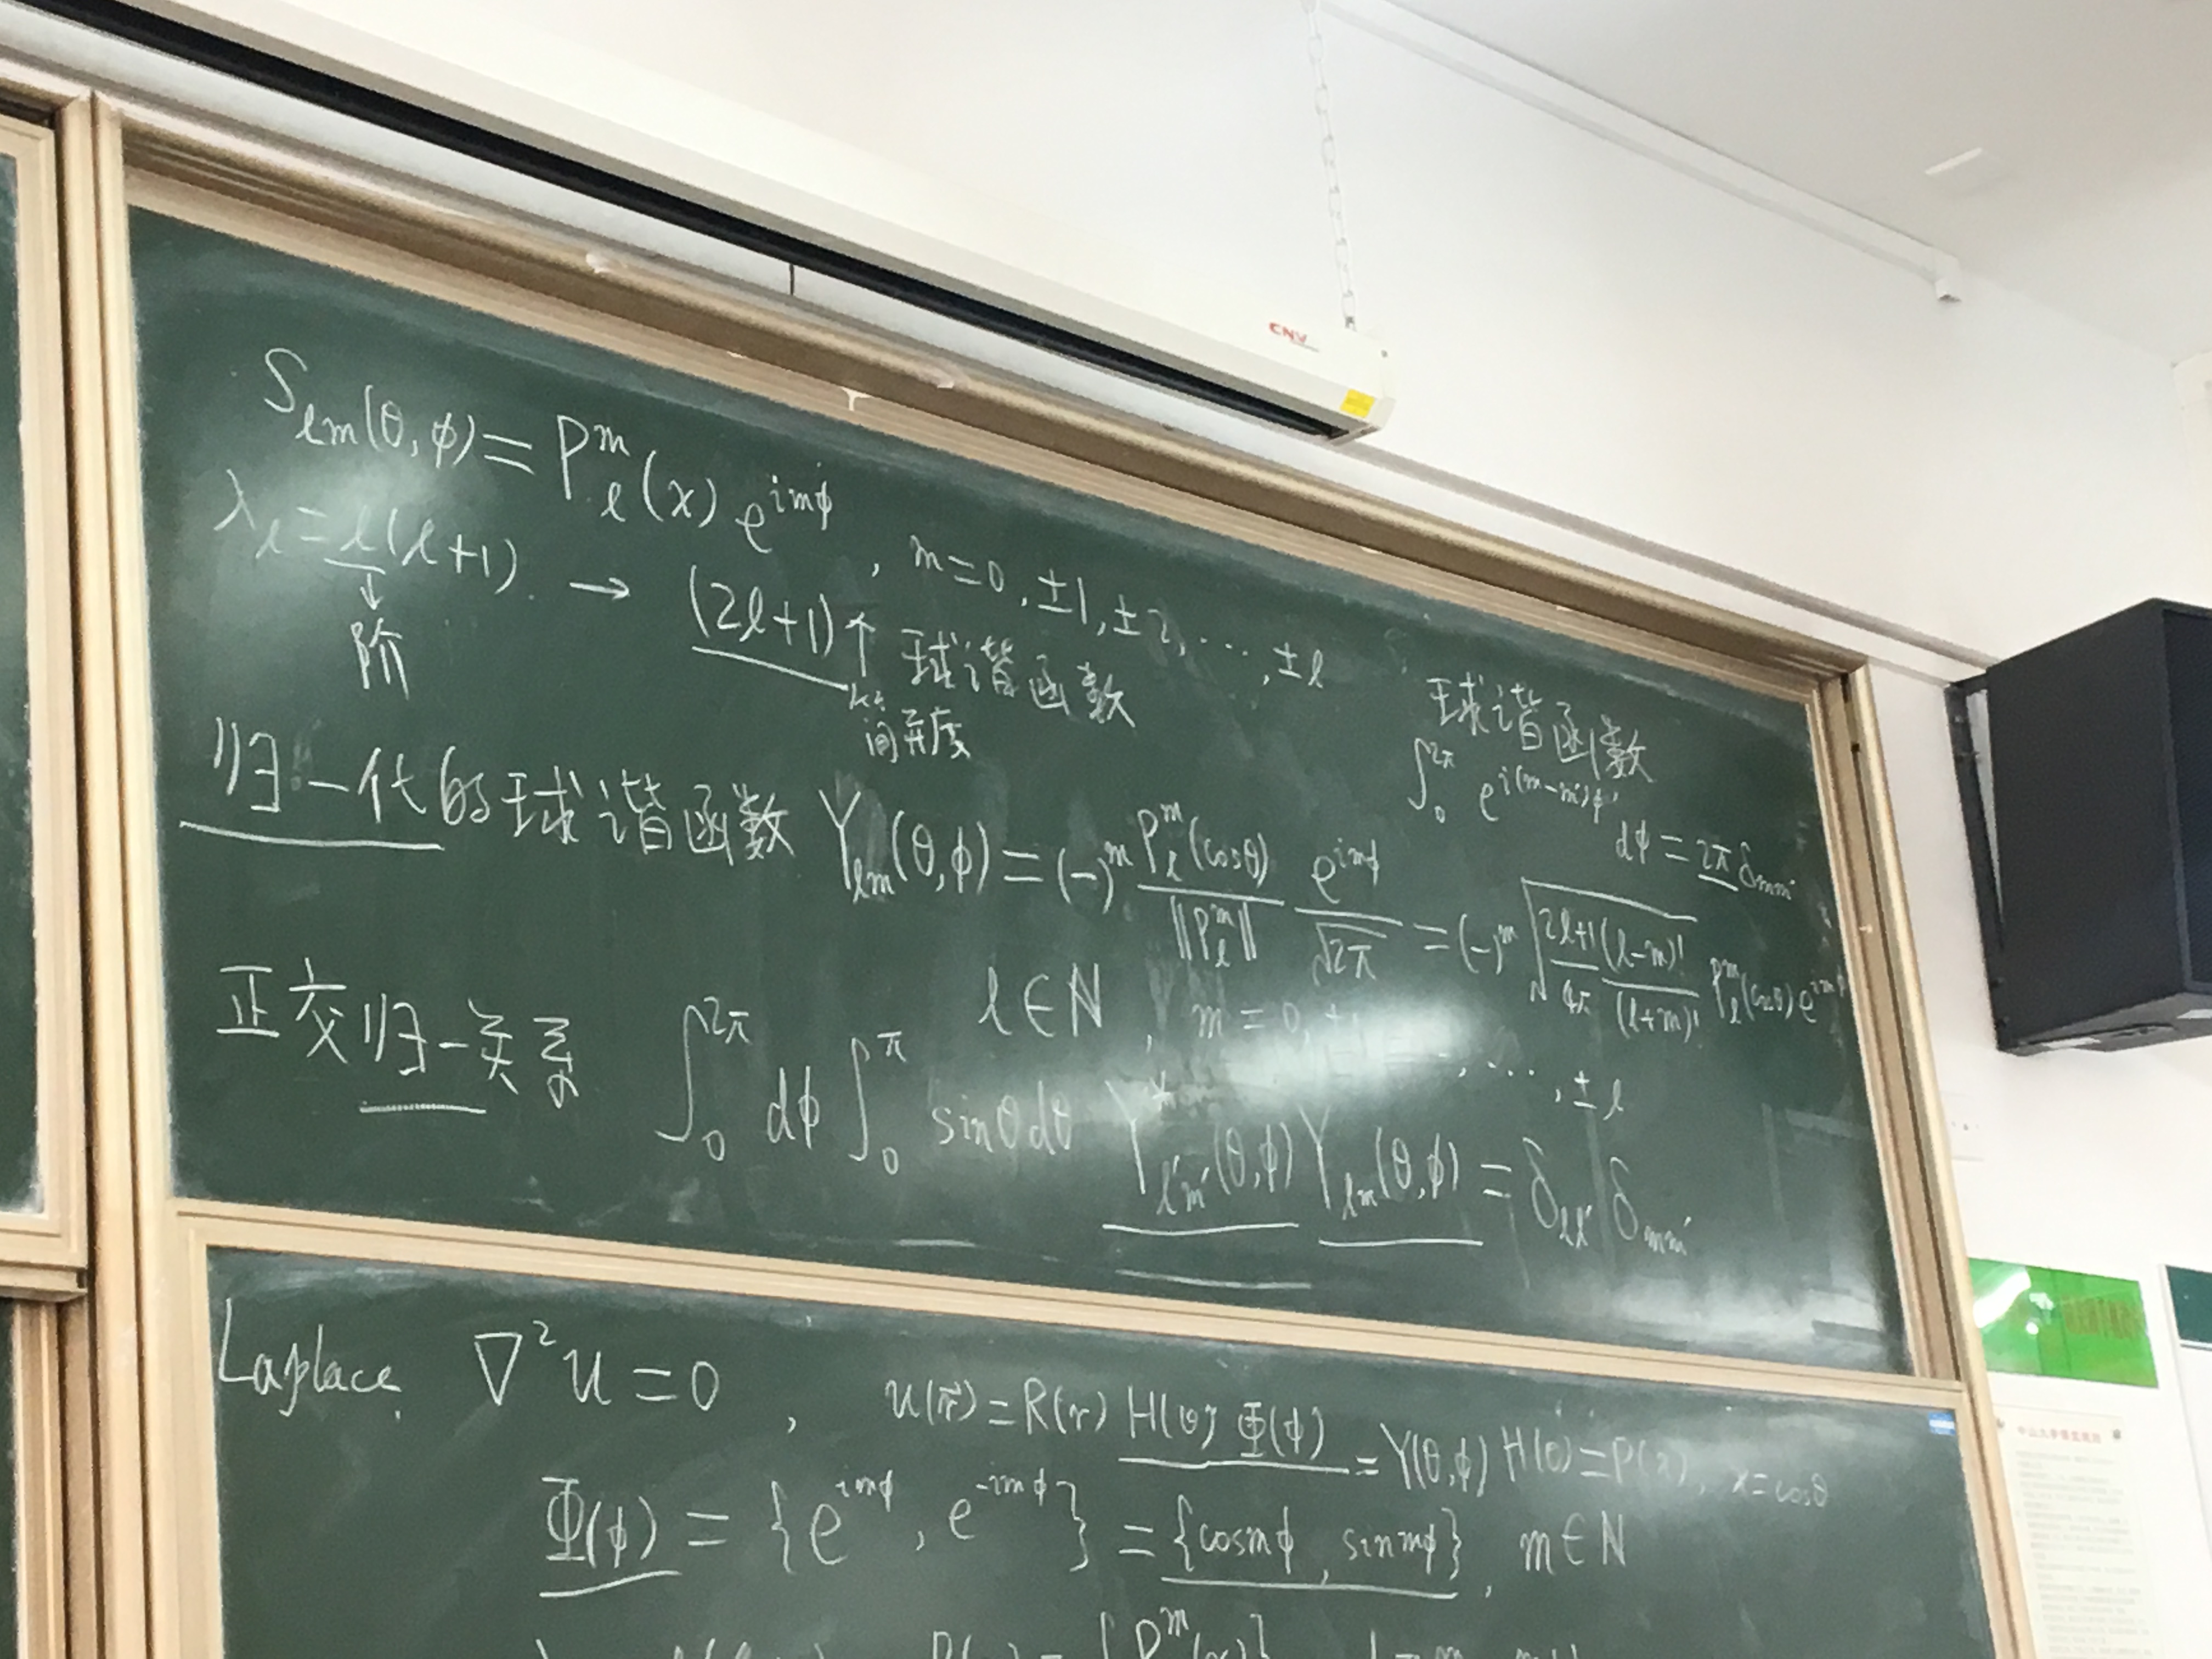 CNV
S_{lm}(θ,φ) = P_l^m(x) e^{imφ}, m=0, ±1, ±2, ⋯, ±l
λ_l = l(l+1) → (2l+1)个 球谐函数
阶
简并度
球谐函数
∫_0^{2π} e^{i(m-m')φ} dφ = 2π δ_{mm'}
归一化的球谐函数 Y_{lm}(θ,φ) = (-)^m \frac{P_l^m(cosθ)}{‖P_l^m‖} \frac{e^{imφ}}{\sqrt{2π}} = (-)^m \sqrt{\frac{2l+1}{4π} \frac{(l-m)!}{(l+m)!}} P_l^m(cosθ) e^{imφ}
l∈N, m=0, ±1, ⋯, ±l
正交归一关系 ∫_0^{2π} dφ ∫_0^π sinθdθ Y*_{l'm'}(θ,φ) Y_{lm}(θ,φ) = δ_{ll'} δ_{mm'}
Laplace. ∇²u=0, u(r⃗)=R(r) H(θ) Φ(φ) = Y(θ,φ) H(θ)=P(x), x=cosθ
Φ(φ) = {e^{imφ}, e^{-imφ}} = {cosmφ, sinmφ}, m∈N